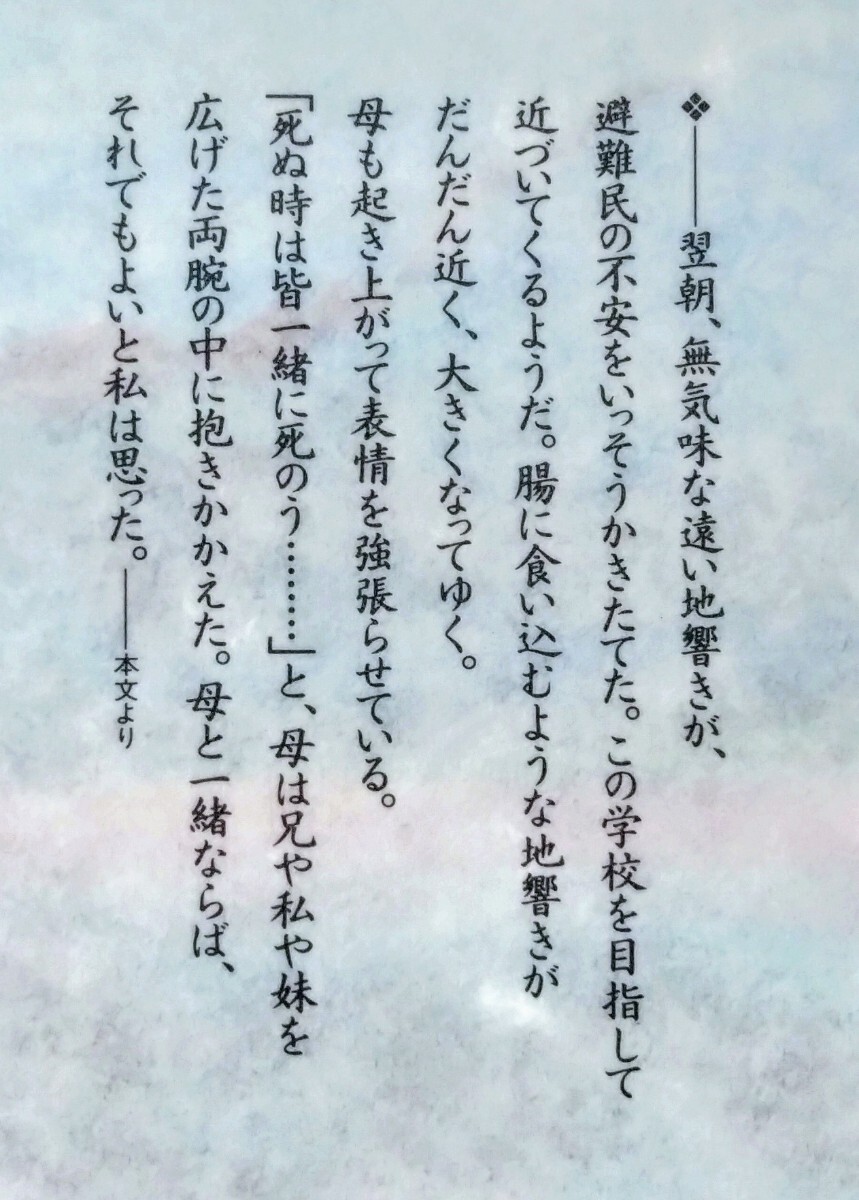 ❖――翌朝、無気味な遠い地響きが、
避難民の不安をいっそうかきたてた。この学校を目指して
近づいてくるようだ。腸に食い込むような地響きが
だんだん近く、大きくなってゆく。
母も起き上がって表情を強張らせている。
「死ぬ時は皆一緒に死のう………」と、母は兄や私や妹を
広げた両腕の中に抱きかかえた。母と一緒ならば、
それでもよいと私は思った。――本文より